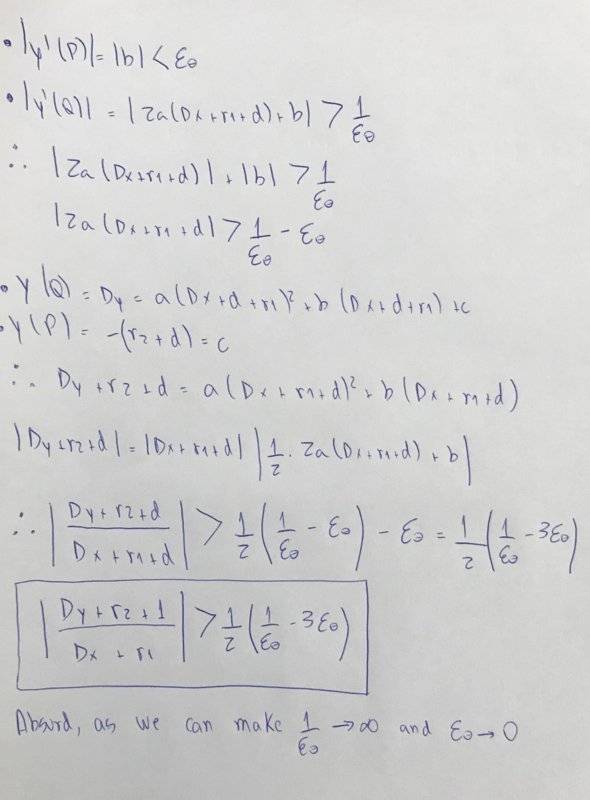 • |y'(P)| = |b| < ε₀
• |y'(Q)| = |2a(Dx+r1+d)+b| > 1/ε₀
∴ |2a(Dx+r1+d)| + |b| > 1/ε₀
|2a(Dx+r1+d| > 1/ε₀ - ε₀
• y(Q) = Dy = a(Dx+d+r1)² + b(Dx+d+r1)+c
• y(P) = -(r2+d) = c
∴ Dy+r2+d = a(Dx+r1+d)² + b(Dx+r1+d)
|Dy+r2+d| = |Dx+r1+d| |1/2 · 2a(Dx+r1+d) + b|
∴ |(Dy+r2+d)/(Dx+r1+d)| > 1/2 (1/ε₀ - ε₀) - ε₀ = 1/2 (1/ε₀ - 3ε₀)
|(Dy+r2+1)/(Dx+r1)| > 1/2 (1/ε₀ - 3ε₀)
Absurd, as we can make 1/ε₀ → ∞ and ε₀ → 0